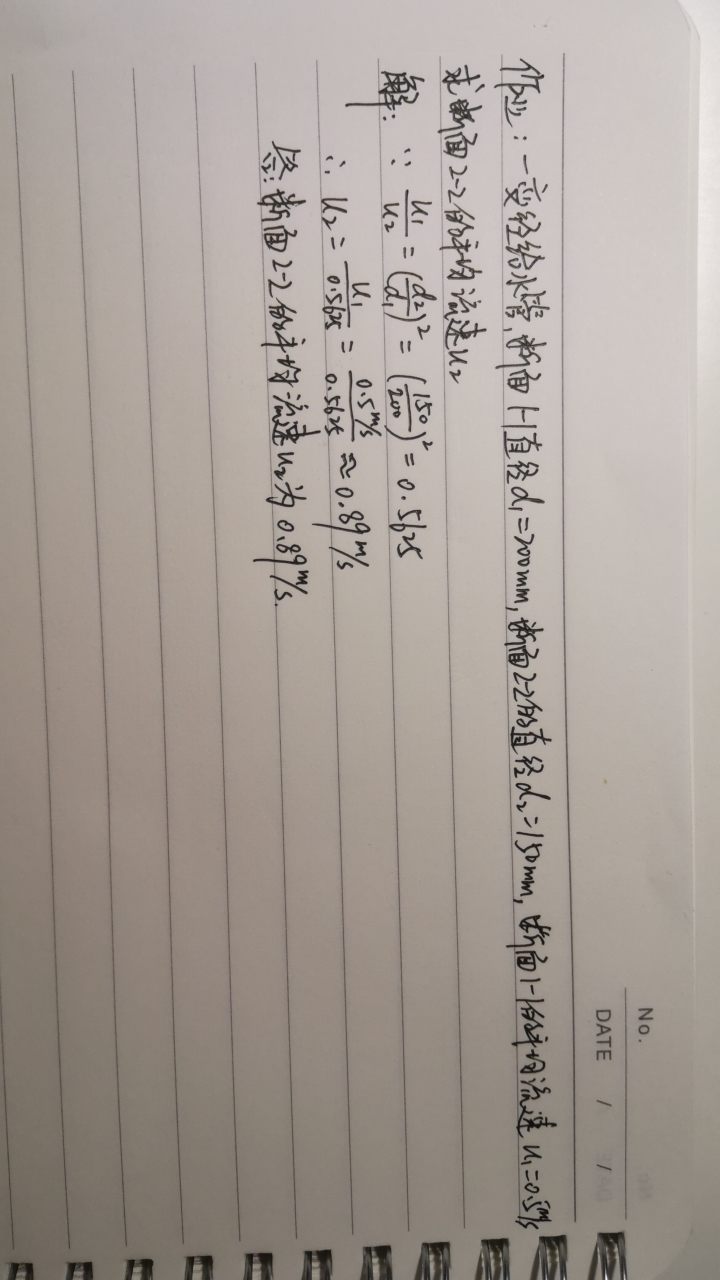 No.
DATE / /
作业：一变径给水管，断面1-1直径d₁=200mm，断面2-2的直径d₂=150mm，断面1-1的平均流速u₁=0.5m/s
求断面2-2的平均流速u₂
解：∵ u₁/u₂ = (d₂/d₁)² = (150/200)² = 0.5625
∴ u₂ = u₁/0.5625 = 0.5m/s/0.5625 ≈ 0.89m/s
答：断面2-2的平均流速u₂为0.89m/s.